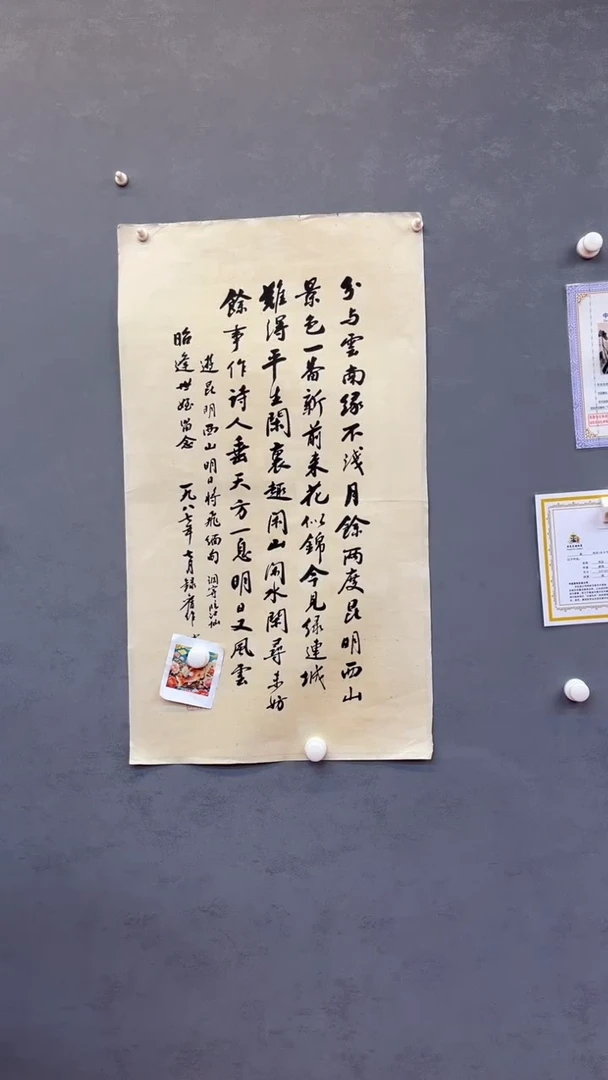 分与雲南緣不浅月餘两度昆明西山
景色一番新前来花似錦今見緑連城
難得平生閑裏趣閑山閑水閑尋未妨
餘事作詩人垂天方一息明日又風雲
遊昆明西山明日將飛緬甸 調寄臨江仙
昭逢世姪留念 一九八七年七月録舊作